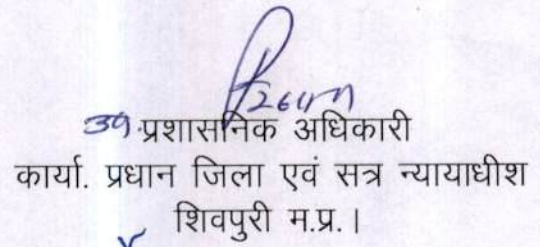 प्रशासनिक अधिकारी
कार्या. प्रधान जिला एवं सत्र न्यायाधीश
शिवपुरी म.प्र.।